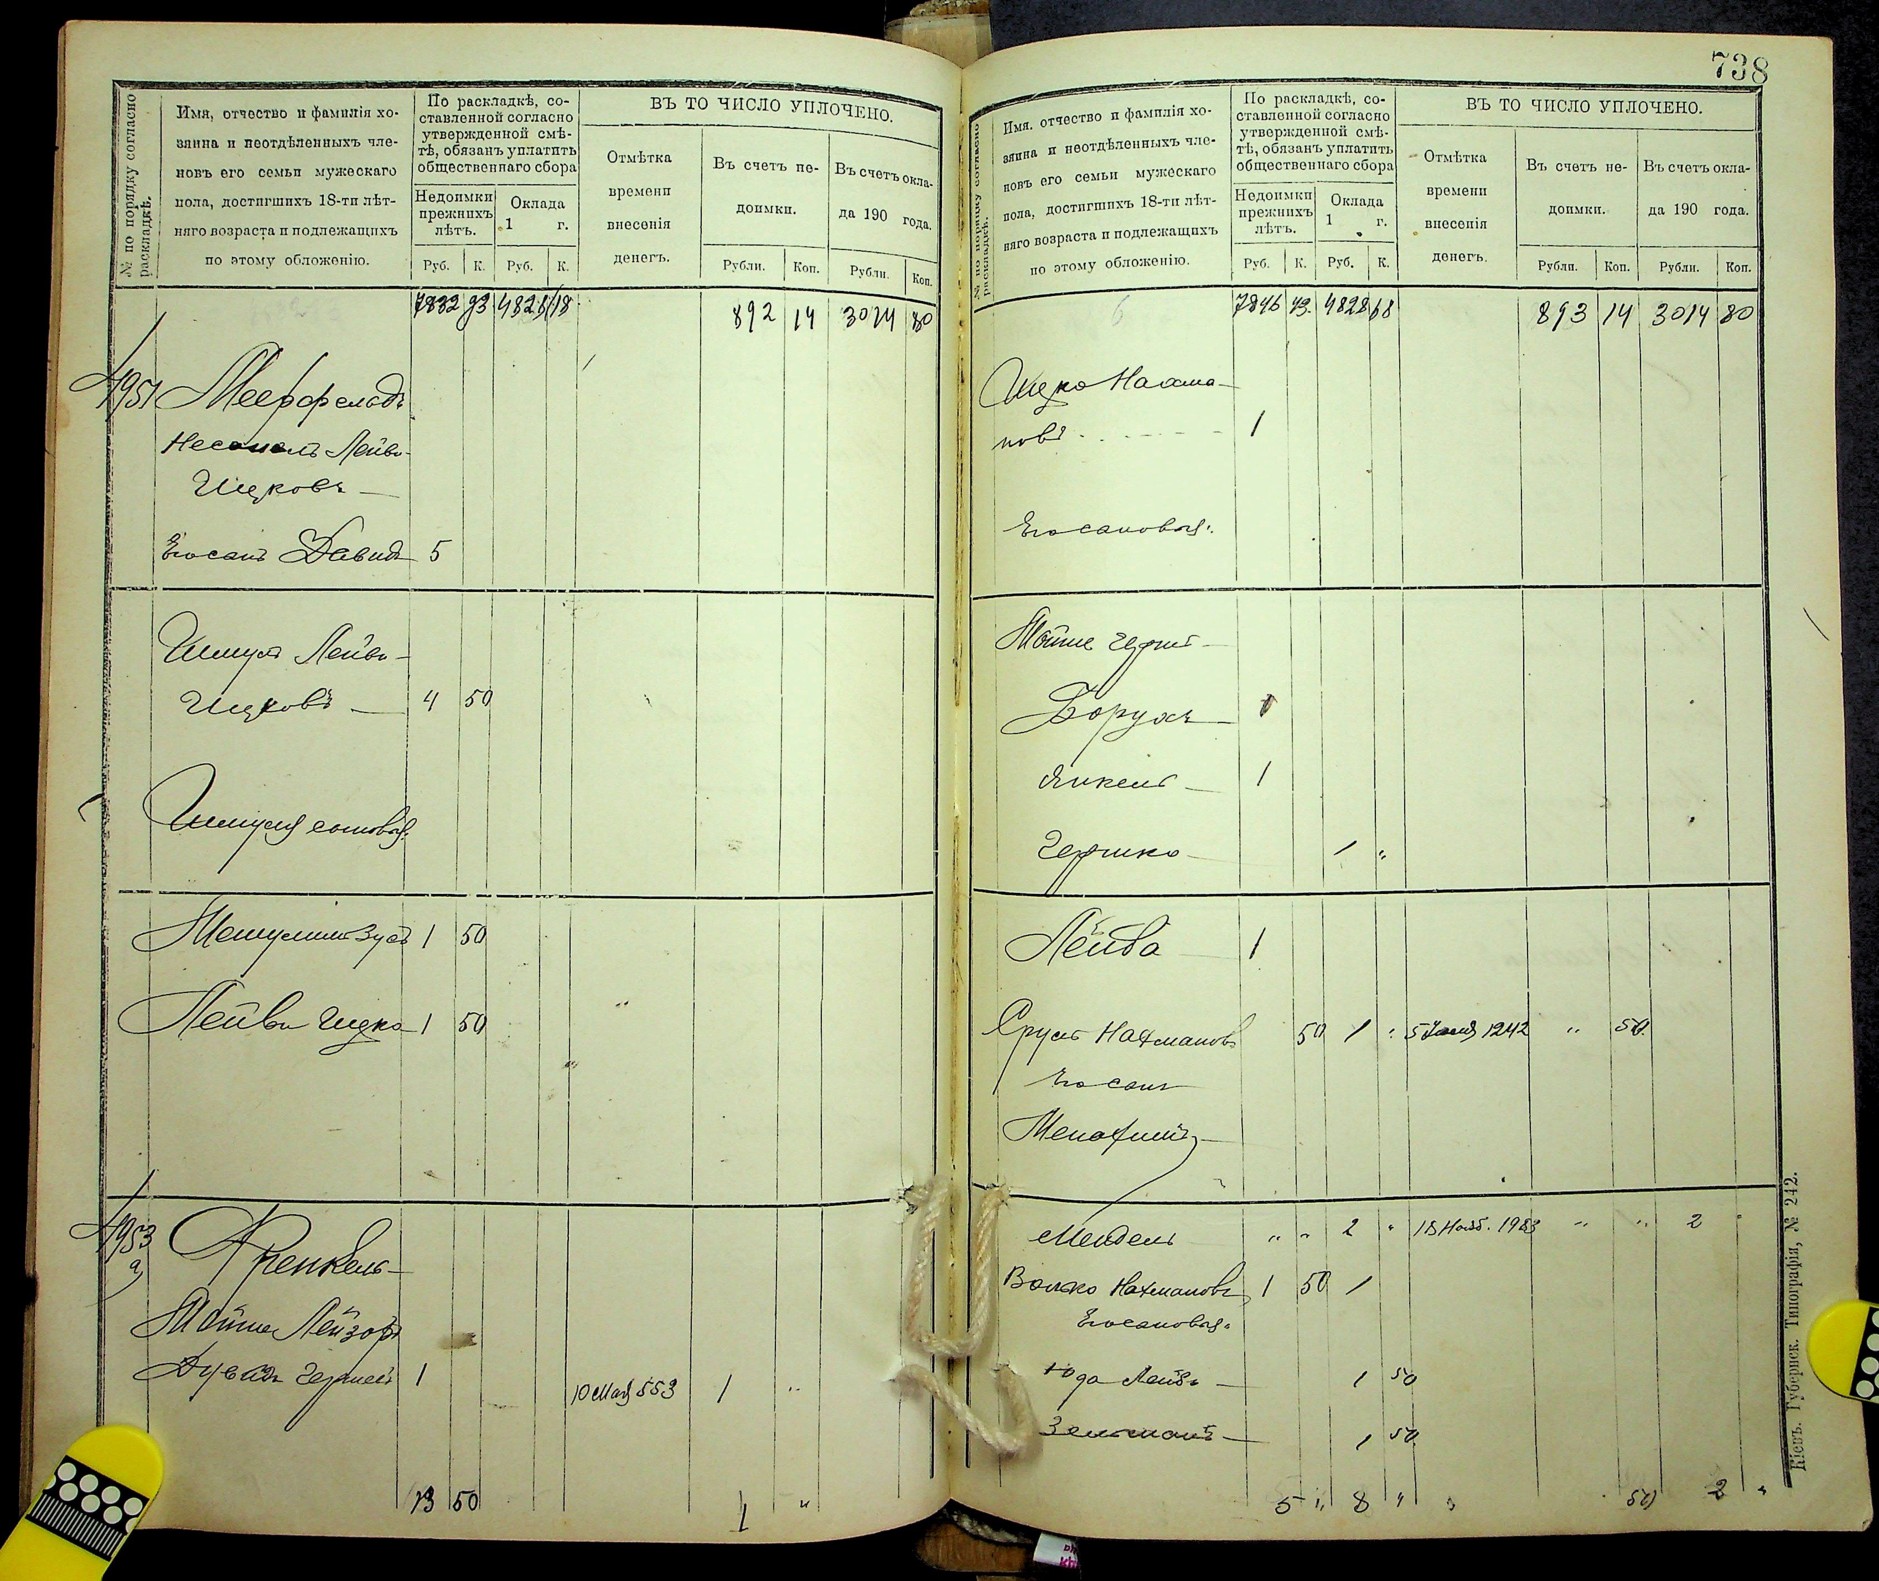 738
№ по порядку согласно раскладкѣ.
Имя, отчество и фамилія хо-
зяина и неотдѣленныхъ чле-
новъ его семьи мужескаго
пола, достигшихъ 18-ти лѣт-
няго возраста и подлежащихъ
по этому обложенію.
По раскладкѣ, со-
ставленной согласно
утвержденной смѣ-
тѣ, обязанъ уплатить
общественнаго сбора
Недоимки
прежнихъ
лѣтъ.
Оклада
1 г.
Руб. К. Руб. К.
ВЪ ТО ЧИСЛО УПЛОЧЕНО.
Отмѣтка
времени
внесенія
денегъ.
Въ счетъ не-
доимки.
Въ счетъ окла-
да 190 года.
Рубли. Коп. Рубли. Коп.
7832 93 4828 18 892 14 3014 80
4951 Меерфельдъ
Лейви-
Ицковъ
Іосанъ Давидъ 5
Шмуль Лейви-
Ицковъ 4 50
Шмуля сыновья:
Мешулимъ Зусь 1 50
Лейви Ицко 1 50
4953
а)
Френкель
Мойше Лейзоръ
Дувидъ Гершевъ 1 10 Мая 553 1 "
13 50 1 "
№ по порядку согласно раскладкѣ.
Имя, отчество и фамилія хо-
зяина и неотдѣленныхъ чле-
новъ его семьи мужескаго
пола, достигшихъ 18-ти лѣт-
няго возраста и подлежащихъ
по этому обложенію.
По раскладкѣ, со-
ставленной согласно
утвержденной смѣ-
тѣ, обязанъ уплатить
общественнаго сбора
Недоимки
прежнихъ
лѣтъ.
Оклада
1 г.
Руб. К. Руб. К.
ВЪ ТО ЧИСЛО УПЛОЧЕНО.
Отмѣтка
времени
внесенія
денегъ.
Въ счетъ не-
доимки.
Въ счетъ окла-
да 190 года.
Рубли. Коп. Рубли. Коп.
7846 43 4828 68 893 14 3014 80
Ицко Нахма-
новъ 1
Мойше Герш
Борухъ
Янкель 1
Гершко 1 "
Лейба 1
Сруль Нахмановъ 50 1 " 1242 " 50
Мендель " " 2 " 18 Нояб. 1983 " " 2 "
Волько Нахмановъ 1 50 1
Юда Лейвъ 1 50
Зельманъ 1 50
5 " 8 " 50 2 "
Кіевъ. Губернск. Типографія, № 242.